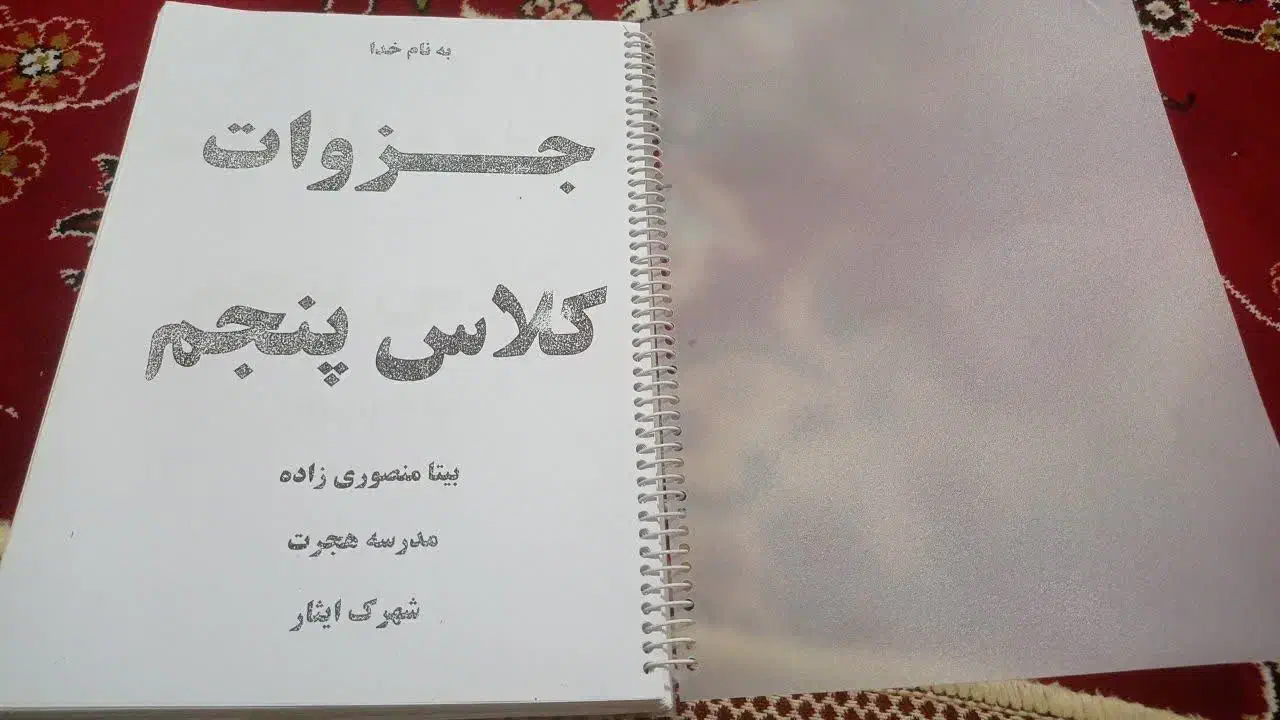 به نام خدا
جزوات
کلاس پنجم
بیتا منصوری زاده
مدرسه هجرت
شهرک ایثار